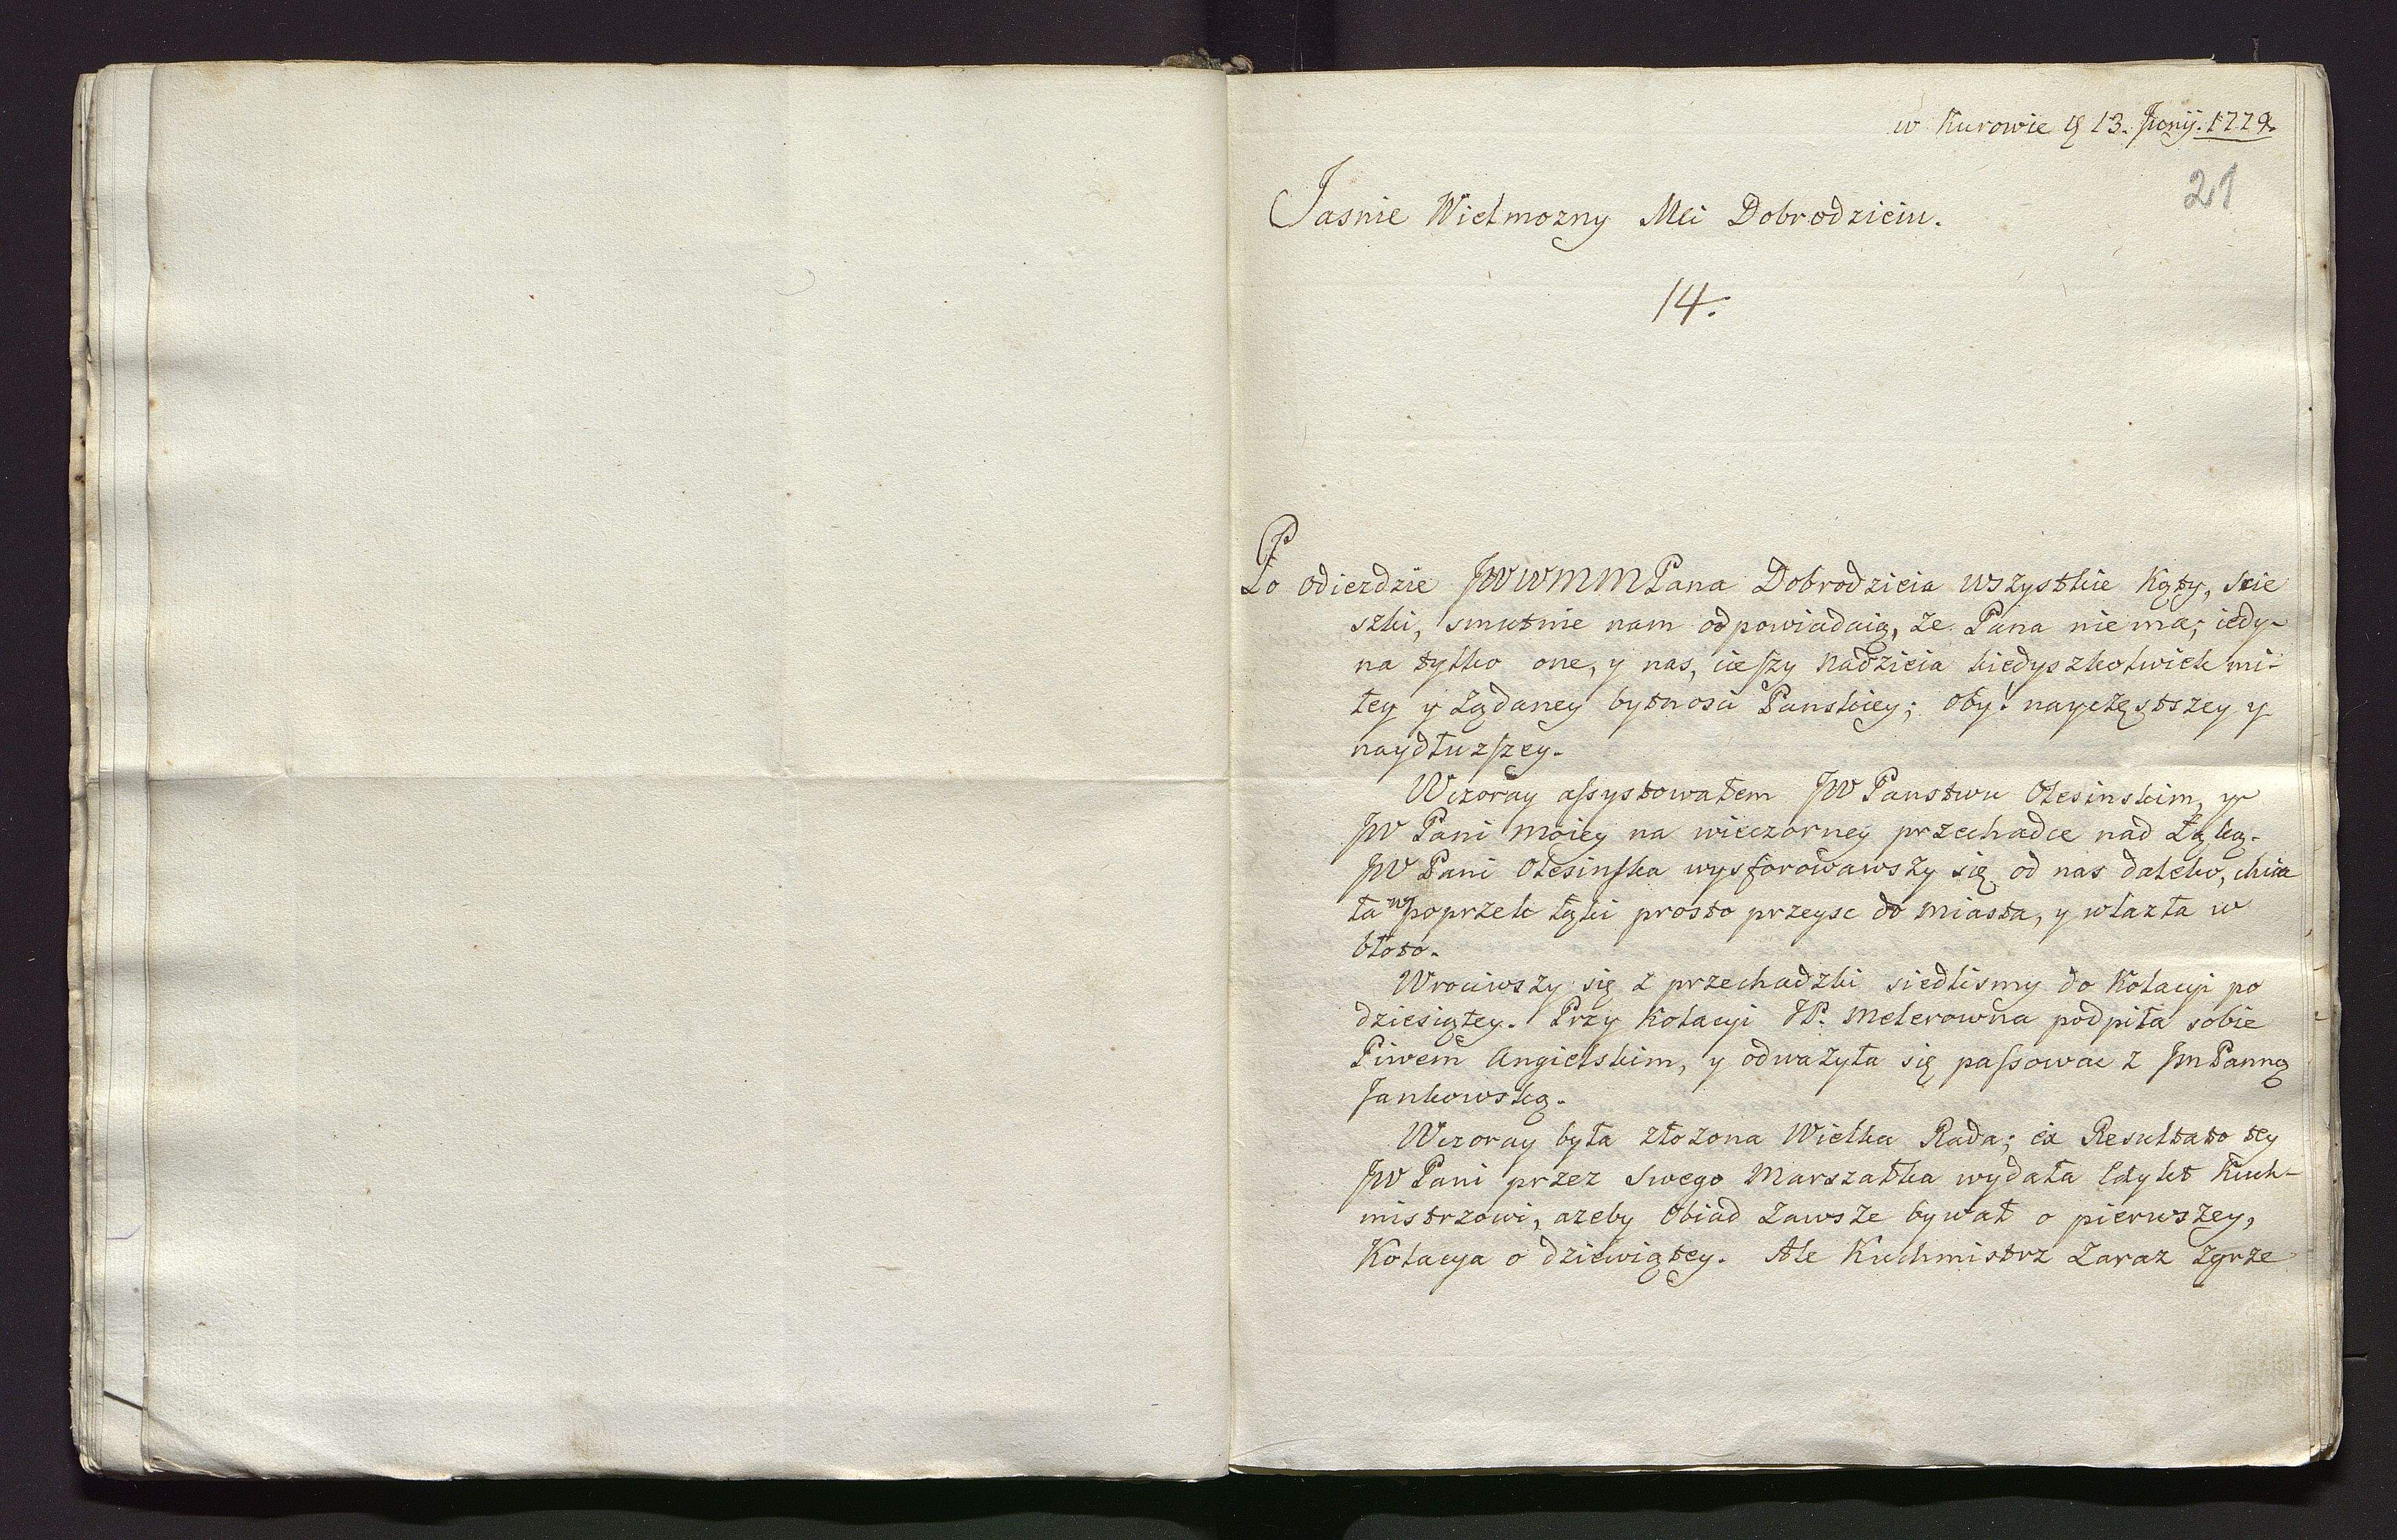 w Kurowie 13. Junij. 1779.
21
Jasnie Wielmozny Mci Dobrodzieiu.
14.
Po odiezdzie JWWMMPana Dobrodzieia wszystkie Kąty, scie
szki, smutnie nam odpowiadaią, że Pana niema; iedy-
na tylko one, y nas, cieszy nadzieia kiedyszkolwiek mi-
łey y żądaney bytnosci Panskiey; oby! nayczęstszey y
naydłuzszey.
Wczoray assystowałem JW Panstwu Olesinskim, y
JW Pani moiey na wieczorney przechadce nad Łąką.
JW Pani Olesinska wysforowawszy się od nas daleko, chcia
ła w poprzek łąki prosto przeysc do miasta, y wlazła w
błoto.
Wrociwszy się z przechadzki siedlismy do Kolacyi po
dziesiątey. Przy Kolacyi JP. Melerowna podpiła sobie
Piwem Angielskim, y odważyła się passowac z Jm Panną
Jankowską.
Wczoray była złozona Wielka Rada; ex Resultato tey
JW Pani przez swego Marszałka wydała Edykt Kuch-
mistrzowi, azeby Obiad zawsze bywał o pierwszey,
Kolacya o dziewiątey. Ale Kuchmistrz zaraz zgrze